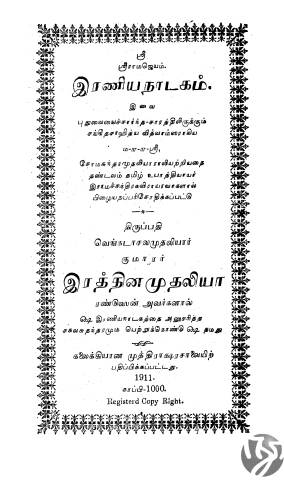 ஸ்ரீ
ஸ்ரீராமஜெயம்.
இரணியநாடகம்.
இவை
புதுவையைச்சார்ந்த-சாரத்திலிருக்கும்
சங்கீதசாஹித்ய வித்வாம்ஸராகிய
ம-ள-ள-ஸ்ரீ,
சோமசுந்தரமுதலியாராலியற்றியதை
தண்டலம் தமிழ் உபாத்தியாயர்
இராமச்சந்திரகவிராயரவர்களால்
பிழையறப்பரிசோதிக்கப்பட்டு
திருப்பதி
வெங்கடாசலமுதலியார்
குமாரர்
இரத்தினமுதலியார்
ரண்டுஸன் அவர்களால்
ஷெ இரணியநாடகத்தை அனுசரித்த
சகலசுதந்தரமும் பெற்றுக்கொண்டு ஷெ தமது
கலைக்கியான முத்திராக்ஷரசாலையிற்
பதிப்பிக்கப்பட்டது.
1911.
காப்பி-1000.
Registerd Copy Right.